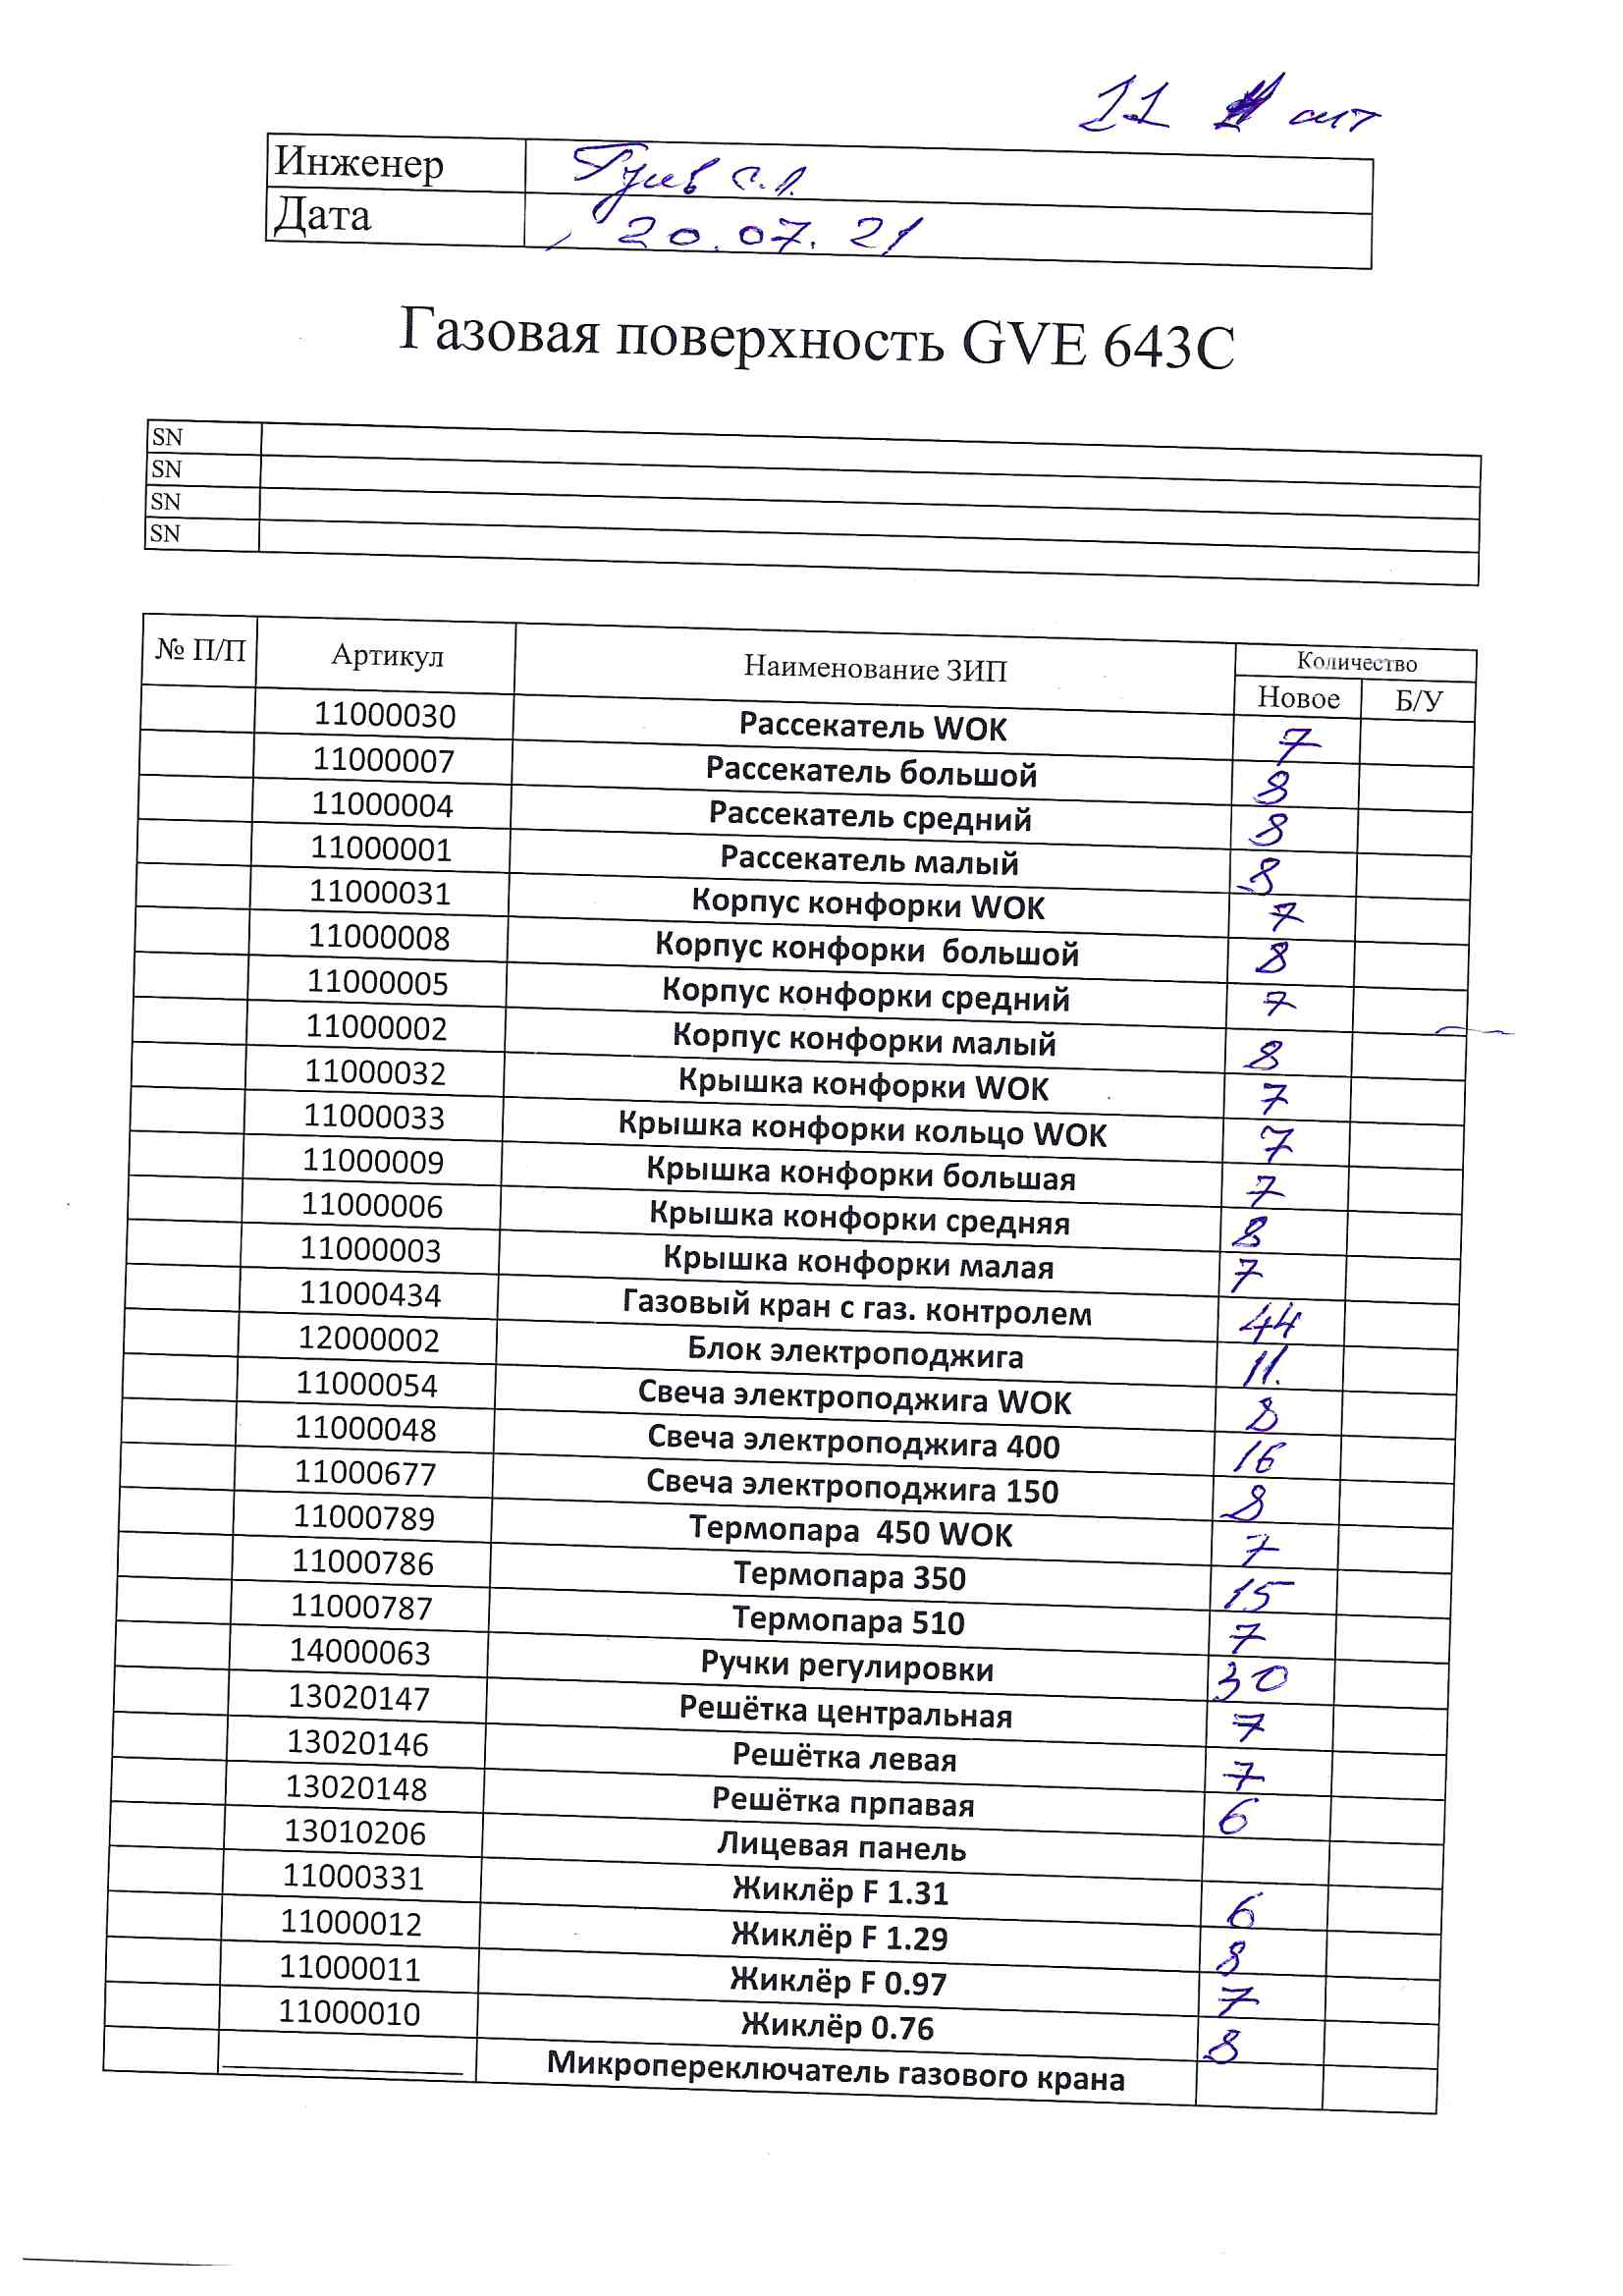 11 шт
Инженер
Дата 20.07.21
Газовая поверхность GVE 643C
SN
SN
SN
SN
№ П/П Артикул Наименование ЗИП Количество
Новое Б/У
11000030 Рассекатель WOK 7
11000007 Рассекатель большой 8
11000004 Рассекатель средний 8
11000001 Рассекатель малый 8
11000031 Корпус конфорки WOK 7
11000008 Корпус конфорки большой 8
11000005 Корпус конфорки средний 7
11000002 Корпус конфорки малый 8
11000032 Крышка конфорки WOK 7
11000033 Крышка конфорки кольцо WOK 7
11000009 Крышка конфорки большая 7
11000006 Крышка конфорки средняя 8
11000003 Крышка конфорки малая 7
11000434 Газовый кран с газ. контролем 44
12000002 Блок электроподжига 11.
11000054 Свеча электроподжига WOK 8
11000048 Свеча электроподжига 400 16
11000677 Свеча электроподжига 150 8
11000789 Термопара 450 WOK 7
11000786 Термопара 350 15
11000787 Термопара 510 7
14000063 Ручки регулировки 30
13020147 Решётка центральная 7
13020146 Решётка левая 7
13020148 Решётка прпавая 6
13010206 Лицевая панель
11000331 Жиклёр F 1.31 6
11000012 Жиклёр F 1.29 8
11000011 Жиклёр F 0.97 7
11000010 Жиклёр 0.76 8
Микропереключатель газового крана